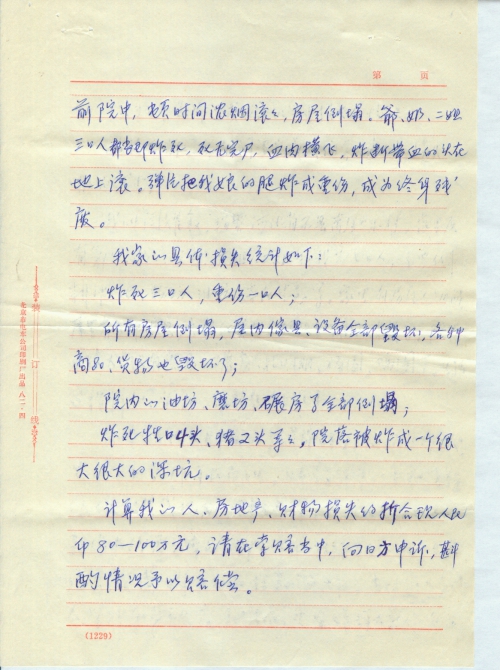 第 页
前院中，顿时间浓烟滚滚，房屋倒塌。爷、奶、二姐
三口人都当即炸死，死无完尸，血肉横飞，炸断带血的头在
地上滚。弹片把我娘的腿炸成重伤，成为终身残
废。
我家的具体损失统计如下：
炸死三口人，重伤一口人；
所有房屋倒塌，屋内傢具、设备全部毁坏，各种
商品、货物也毁坏了；
院内的油坊、磨坊、碾房子全部倒塌；
炸死牲口4头、猪2头等等。院落被炸成一个很
大很大的深坑。
计算我的人、房地产、财物损失约折合现人民
币80—100万元，请在索赔当中，向日方申诉，斟
酌情况予以赔偿。
装订线
北京市电车公司印刷厂出品 八二·四
(1229)